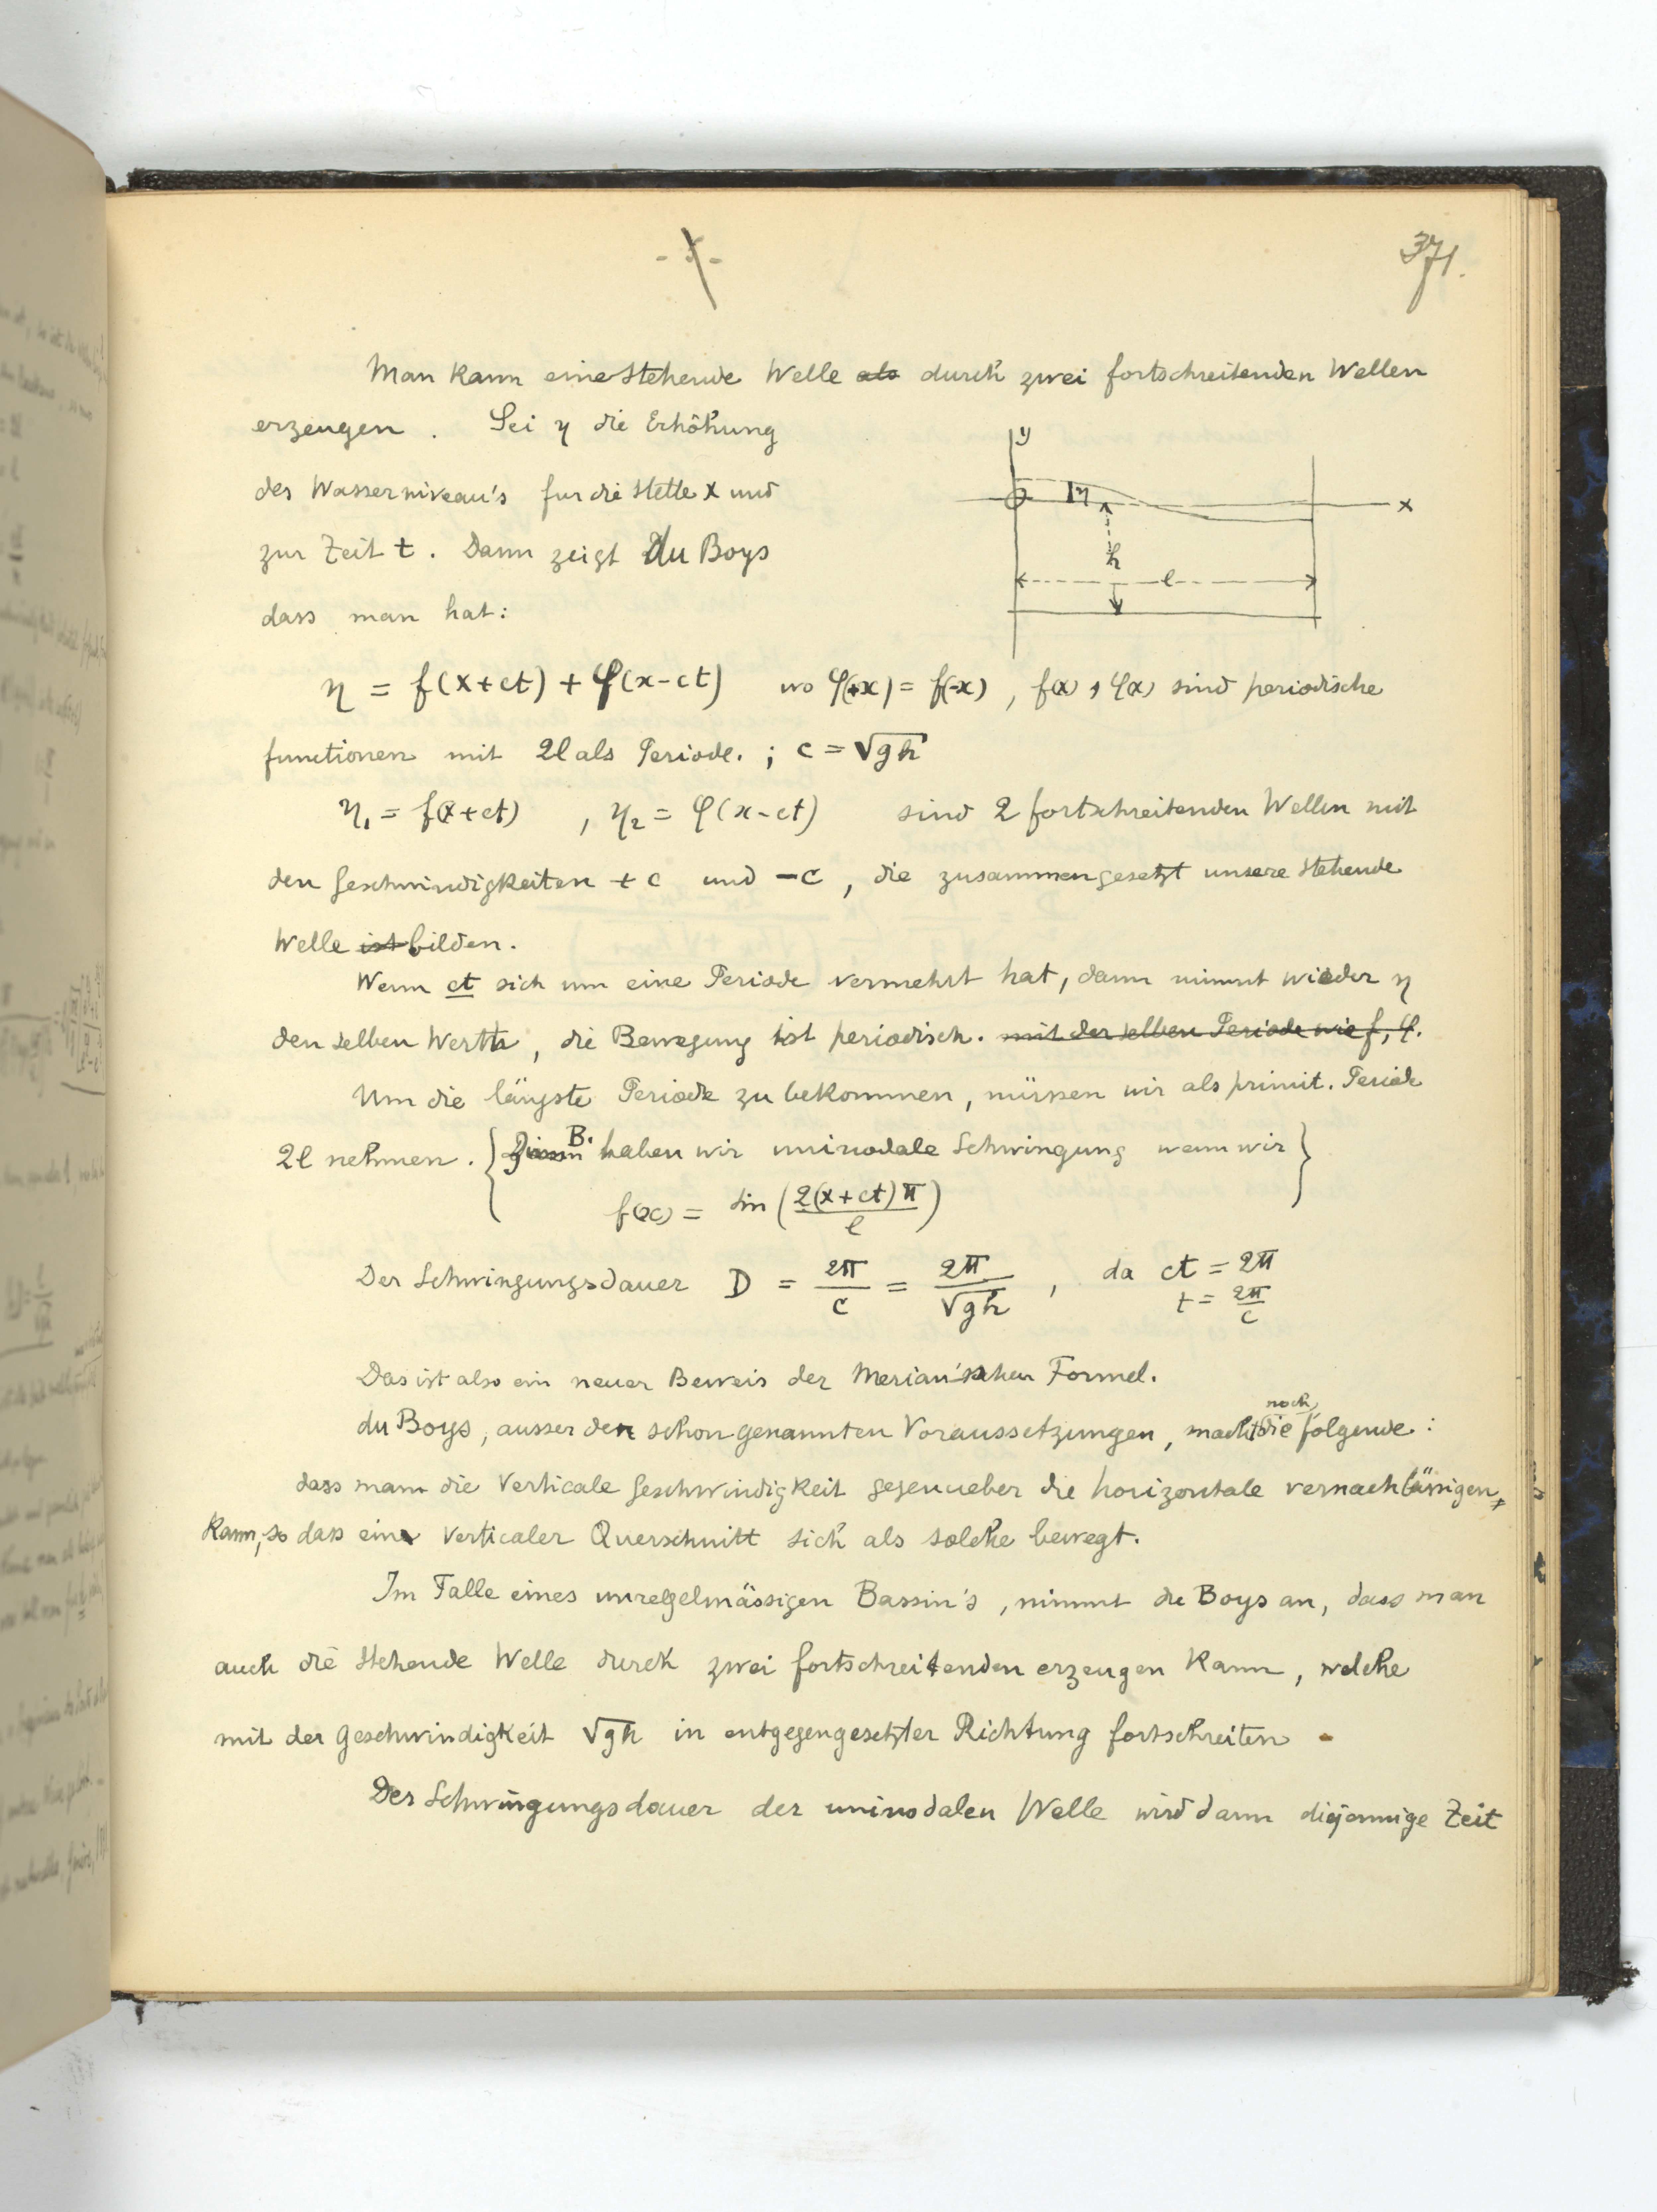 371.
Man kann eine stehende Welle als durch zwei fortschreitenden Wellen
erzeugen. Sei η die Erhöhung
des Wasserniveau's fur die Stelle x und
zur Zeit t. Dann zeigt Du Boys
dass man hat:
y
η
x
h
l
η = f(x+ct) + φ(x-ct) wo φ(+x) = f(-x), f(x), φ(x) sind periodische
functionen mit 2l als Periode. ; c = √gh
η₁ = f(x+ct) , η₂ = φ(x-ct) sind 2 fortschreitenden Wellen mit
den Geschwindigkeiten +c und -c, die zusammengesetzt unsere stehende
Welle ist bilden.
Wenn ct sich um eine Periode vermehrt hat, dann nimmt wieder η
denselben Werth, die Bewegung ist periodisch. mit der selben Periode wie f, φ.
Um die längste Periode zu bekommen, müssen wir als primit. Periode
2l nehmen. { z.B. haben wir uninodale Schwingung wenn wir }
f(x) = sin (2(x+ct)π/l)
Der Schwingungsdauer D = 2π/c = 2π/√gh , da ct = 2π
t = 2π/c
Das ist also ein neuer Beweis der Merian'schen Formel.
du Boys, ausser den schon genannten Voraussetzungen, macht noch die folgende:
dass man die verticale Geschwindigkeit gegenueber die horizontale vernachlässigen
kann, so dass ein verticaler Querschnitt sich als solche bewegt.
Im Falle eines unregelmässigen Bassin's, nimmt du Boys an, dass man
auch die stehende Welle durch zwei fortschreitenden erzeugen kann, welche
mit der Geschwindigkeit √gh in entgegengesetzter Richtung fortschreiten.
Der Schwingungsdauer der uninodalen Welle wird dann diejennige Zeit